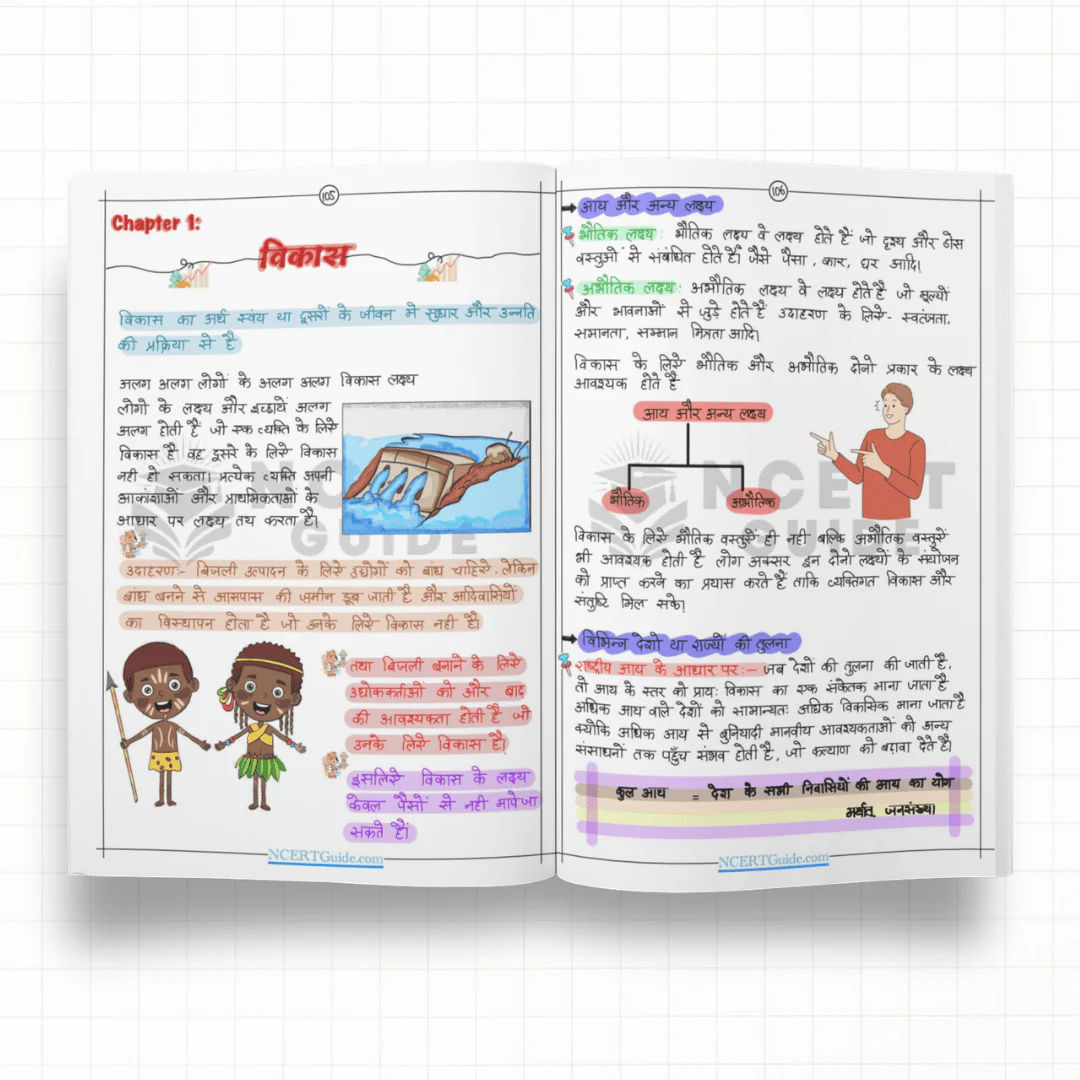 105
Chapter 1:
विकास
विकास का अर्थ स्वंय या दूसरों के जीवन मे सुधार और उन्नति
की प्रक्रिया से है
अलग अलग लोगों के अलग अलग विकास लक्ष्य
लोगो के लक्ष्य और इच्छायें अलग
अलग होती हैं जो एक व्यक्ति के लिए
विकास है वह दूसरे के लिए विकास
नही हो सकता। प्रत्येक व्यक्ति अपनी
आकांशाओं और प्राथमिकताओं के
आधार पर लक्ष्य तय करता है।
उदाहरण:- बिजली उत्पादन के लिए उद्योगों को बांध चाहिए. लेकिन
बांध बनने से आसपास की ज़मीन डूब जाती है और आदिवासियों
का विस्थापन होता है जो उनके लिए विकास नही है।
तथा बिजली बनाने के लिए
उद्योककर्ताओं को और बाद
की आवश्यकता होती है जो
उनके लिए विकास है।
इसलिए विकास के लक्ष्य
केवल पैसों से नही मापे जा
सकते हैं।
NCERTGuide.com
NCERT
GUIDE
106
आय और अन्य लक्ष्य
भौतिक लक्ष्य: भौतिक लक्ष्य वे लक्ष्य होते हैं जो दृश्य और ठोस
वस्तुओं से संबंधित होते हैं। जैसे पैसा, कार, घर आदि।
अभौतिक लक्ष्य: अभौतिक लक्ष्य वे लक्ष्य होते है जो मूल्यों
और भावनाओं से जुड़े होते हैं उदाहरण के लिए- स्वतंत्रता,
समानता, सम्मान मित्रता आदि।
विकास के लिए भौतिक और अभौतिक दोनो प्रकार के लक्ष्य
आवश्यक होते है
आय और अन्य लक्ष्य
भौतिक
अभौतिक
विकास के लिए भौतिक वस्तुएँ ही नही बल्कि अभौतिक वस्तुएँ
भी आवश्यक होती हैं लोग अक्सर इन दोनो लक्ष्यों के संयोजन
को प्राप्त करने का प्रयास करते हैं ताकि व्यक्तिगत विकास और
संतुष्टि मिल सके।
विभिन्न देशो या राज्यों की तुलना
राष्ट्रीय आय के आधार पर:- जब देशों की तुलना की जाती है,
तो आय के स्तर को प्राय: विकास का एक संकेतक माना जाता है
अधिक आय वाले देशों को सामान्यतः अधिक विकसिक माना जाता है
क्योकि अधिक आय से बुनियादी मानवीय आवश्यकताओं को अन्य
संसाधनों तक पहुँच संभव होती है, जो कल्याण को बढ़ावा देते है।
कुल आय = देश के सभी निवासियों की आय का योग
अर्थात् जनसंख्या
NCERTGuide.com
NCERT
GUIDE